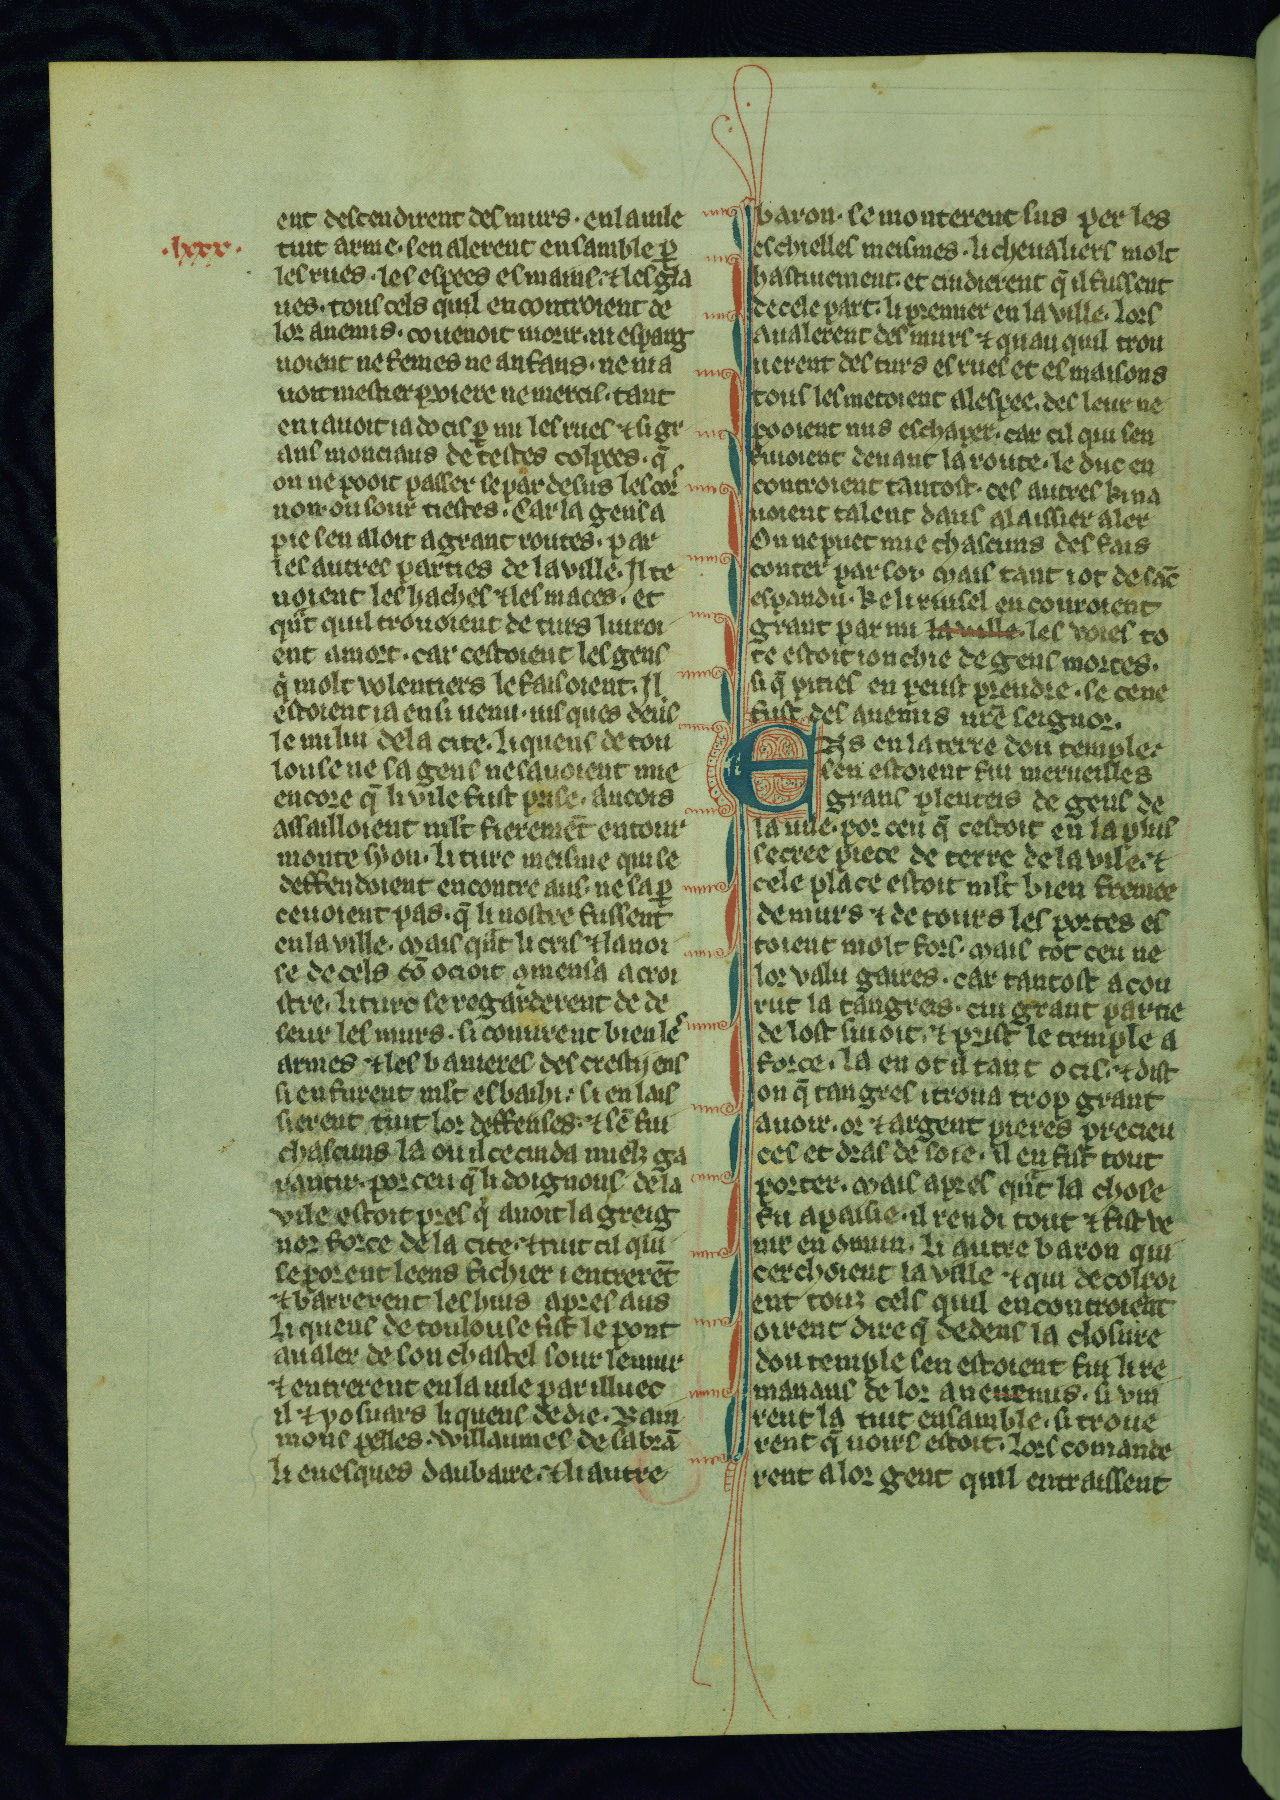 ent descendirent des murs · en la uile
· lxxx ·
tuit arme · sen alerent ensamble p̱
les rues · les espees es mains · ⁊ les gla
ues · tous cels quil encontroient de
lor anemis · couenoit morir · ni esparg
noient ne femes ne anfans · ne ni a
uoit mestier proiere ne mercis · tant
en i auoit ia docis p̱ mi les rues ⁊ si gr
ans monciaus de testes colpees · q̄
on ne pooit passer se par desus les cors
non ou sour tiestes · Car la gens a
pie sen aloit a grant routes · par
les autres parties de la ville · Il te
noient les haches ⁊ les maces · et
qu̓t quil trouoient de turs liuroi
ent a mort · car cestoient les gens
q̓ molt volentiers le faisoient · Il
estoient ia ensi uenu · iusques deus
le miliu de la cite · Li queus de tou
louse ne sa gens ne sauoient mie
encore q̄ li vile fust prise · ancois
assailloient mlt fieremēt entour
monte syon · li turc meisme qui se
deffendoient encontre aus · ne sap̱
ceuoient pas · q̄ li nostre fussent
en la ville · mais qu̓t li cris ⁊ la noi
se de cels cō ocioit 9mensa a croi
stre · li turc se regarderent de de
seur les murs · si conurent bien les
armes ⁊ les banieres des crestijens
si en furent mlt esbaihi · si en lais
sierent tuit lor deffenses · ⁊ sē fui
chascuns la ou il ce cuida muelz ga
rantir · por ceu q̄ li doignons de la
vile estoit pres q̓ auoit la greig
nor force de la cite · ⁊ tuit cil qui
se porent leens fichier i entrerēt
⁊ barrerent les huis apres aus
Li queus de toulouse fist le pont
aualer de son chastel sour le mur
⁊ entrerent en la uile par illuec
il ⁊ ysouars li queus de die · Rain
mons pelles · Willaumes de sabrā
li euesques daubaire · ⁊ li autre
baron · se monterent sus per les
eschielles meismes · li cheualiers molt
hastiuement · et cuidierent q̄ il fussent
de cele part · li premier en la ville · lors
aualerent des murs ⁊ quan quil trou
uerent des turs es rues et es maisons
tous les metoient a lespee · des leur ne
pooient nus eschaper · car cil qui sen
fuioient deuant la route · le duc en
controient tantost · ces autres ki na
uoient talent dans a laissier aler
On ne puet mie chascuns des fais
conter par soy · mais tant i ot de sāc
espandu · ke li ruisel en couroient
grant par mi la ville · les voies to
te estoit ionchie de gens mortes ·
si q̄ pities en peust prendre · se cene
fust des anemis nr̄e seignor ·
Ens en la terre dou temple ·
sen estoient fui merueilles
grans plenteis de gens de
la uile · por ceu q̄ cestoit en la plus
secree piece de terre de la vile · ⁊
cele place estoit mlt bien fremee
de murs ⁊ de tours les portes es
toient molt fors · mais tot ceu ne
lor valu gaires · car tantost acou
rut la tangreis · cui grant partie
de lost siuoit · ⁊ prist le temple a
force · la en ot il tant ocis · ⁊ dist
on q̄ tangres i troua trop grant
auoir · or ⁊ argent pieres precieu
ces et dras de soie · il en fist tout
porter · mais apres qu̓t la chose
fu apaisie · il rendi tout ⁊ fist ve
nir en 9mun · Li autre baron qui
cerchoient la ville ⁊ qui decolpoi
ent touz cels quil encontroient
oirent dire q̄ dedens la closure
dou temple sen estoient fui li re
manans de lor aneuemus · si vin
rent la tuit ensamble · si troue
rent q̄ uoirs estoit · lors comande
rent a lor gent quil entraissent